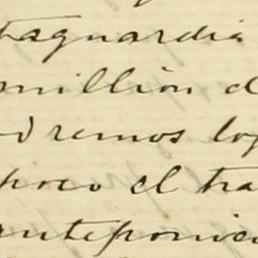 taguardia
millión d
dremos lo
poco el tra
anteponien